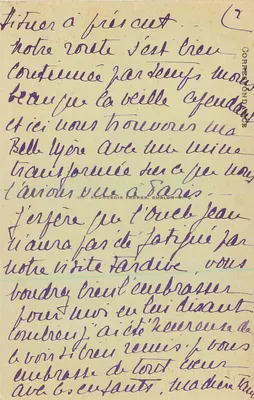 situer à présent — (2
notre route s'est bien
continuée par temps moins
beau que la veille cependant
et ici nous trouvons ma
Belle Mère avec une mine
transformée sur ce que nous
l'avions vue à Paris —
j'espère que l'Oncle Jean
n'aura pas été fatigué par
notre visite tardive, vous
voudrez bien l'embrasser
pour moi en lui disant
combien j'ai été heureuse de
le voir si bien remis. je vous
embrasse de tout cœur
avec les enfants,
CORRESPONDANCE